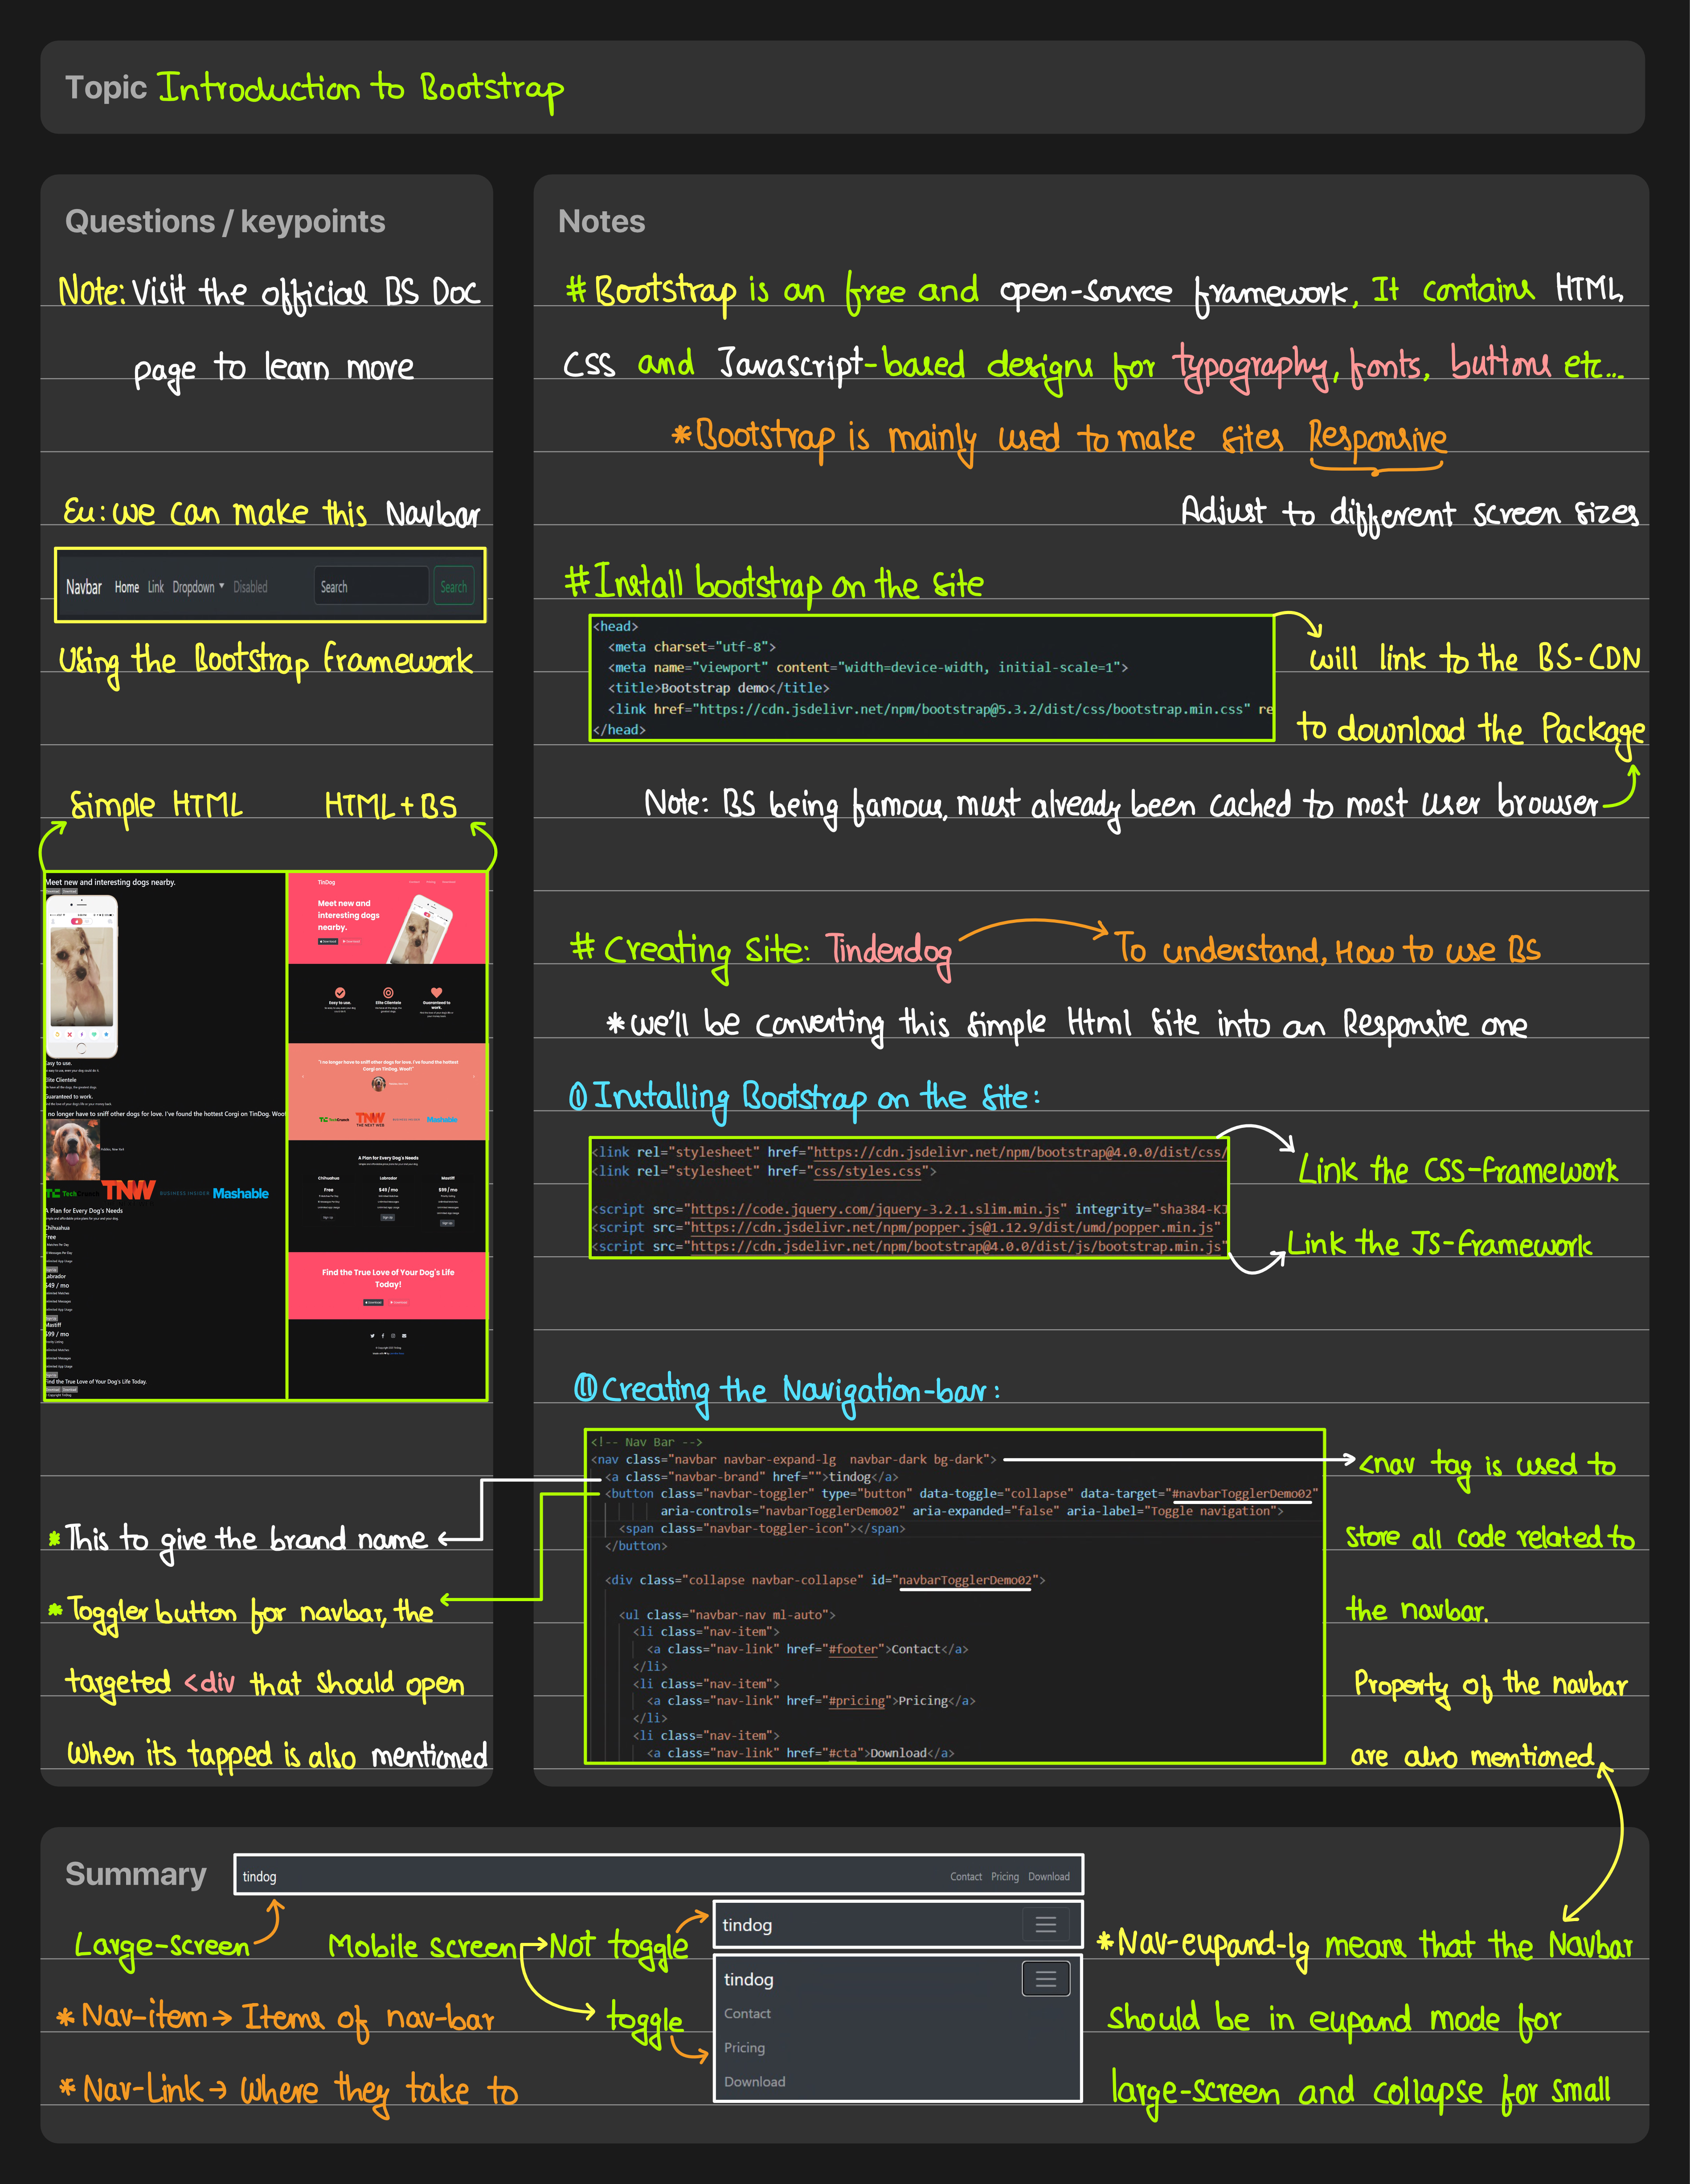 Topic Introduction to Bootstrap
Questions / keypoints
Note: Visit the official BS Doc
page to learn more
Eu: we can make this Navbar
Navbar Home Link Dropdown Disabled Search Search
Using the Bootstrap framework
Simple HTML HTML+BS
Meet new and interesting dogs nearby.
Easy to use.
Elite Clientele
Guaranteed to work.
no longer have to sniff other dogs for love. I've found the hottest Corgi on TinDog. Woof
TechCrunch TNW BUSINESS INSIDER Mashable
A Plan for Every Dog's Needs
Chihuahua
Free
Labrador
$49 / mo
Mastiff
$99 / mo
Find the True Love of Your Dog's Life Today.
TinDog
Meet new and
interesting dogs
nearby.
Easy to use. Elite Clientele Guaranteed to
work.
"I no longer have to sniff other dogs for love. I've found the hottest
Corgi on TinDog. Woof!"
TechCrunch TNW THE NEXT WEB BUSINESS INSIDER Mashable
A Plan for Every Dog's Needs
Chihuahua Labrador Mastiff
Free $49 / mo $99 / mo
Find the True Love of Your Dog's Life
Today!
* This to give the brand name
* Toggler button for navbar, the
targeted <div that should open
when its tapped is also mentioned
Notes
# Bootstrap is an free and open-source framework, It contains HTML,
CSS and Javascript-based designs for typography, fonts, buttons etc...
* Bootstrap is mainly used to make sites Responsive
Adjust to different screen sizes
# Install bootstrap on the site
<head>
<meta charset="utf-8">
<meta name="viewport" content="width=device-width, initial-scale=1">
<title>Bootstrap demo</title>
<link href="https://cdn.jsdelivr.net/npm/bootstrap@5.3.2/dist/css/bootstrap.min.css" re
</head>
will link to the BS-CDN
to download the Package
Note: BS being famous, must already been cached to most user browser
# Creating Site: Tinderdog To understand, How to use BS
* we'll be converting this simple Html site into an Responsive one
① Installing Bootstrap on the site:
<link rel="stylesheet" href="https://cdn.jsdelivr.net/npm/bootstrap@4.0.0/dist/css/
<link rel="stylesheet" href="css/styles.css">
<script src="https://code.jquery.com/jquery-3.2.1.slim.min.js" integrity="sha384-KJ
<script src="https://cdn.jsdelivr.net/npm/popper.js@1.12.9/dist/umd/popper.min.js"
<script src="https://cdn.jsdelivr.net/npm/bootstrap@4.0.0/dist/js/bootstrap.min.js"
Link the CSS-framework
Link the JS-framework
⑪ Creating the Navigation-bar:
<!-- Nav Bar -->
<nav class="navbar navbar-expand-lg  navbar-dark bg-dark">
<a class="navbar-brand" href="">tindog</a>
<button class="navbar-toggler" type="button" data-toggle="collapse" data-target="#navbarTogglerDemo02"
aria-controls="navbarTogglerDemo02" aria-expanded="false" aria-label="Toggle navigation">
<span class="navbar-toggler-icon"></span>
</button>
<div class="collapse navbar-collapse" id="navbarTogglerDemo02">
<ul class="navbar-nav ml-auto">
<li class="nav-item">
<a class="nav-link" href="#footer">Contact</a>
</li>
<li class="nav-item">
<a class="nav-link" href="#pricing">Pricing</a>
</li>
<li class="nav-item">
<a class="nav-link" href="#cta">Download</a>
<nav tag is used to
store all code related to
the navbar.
Property of the navbar
are also mentioned
Summary
tindog Contact Pricing Download
Large-screen Mobile screen Not toggle
toggle
tindog
tindog
Contact
Pricing
Download
* Nav-item → Items of nav-bar
* Nav-Link → Where they take to
* Nav-eupand-lg means that the Navbar
should be in eupand mode for
large-screen and collapse for small